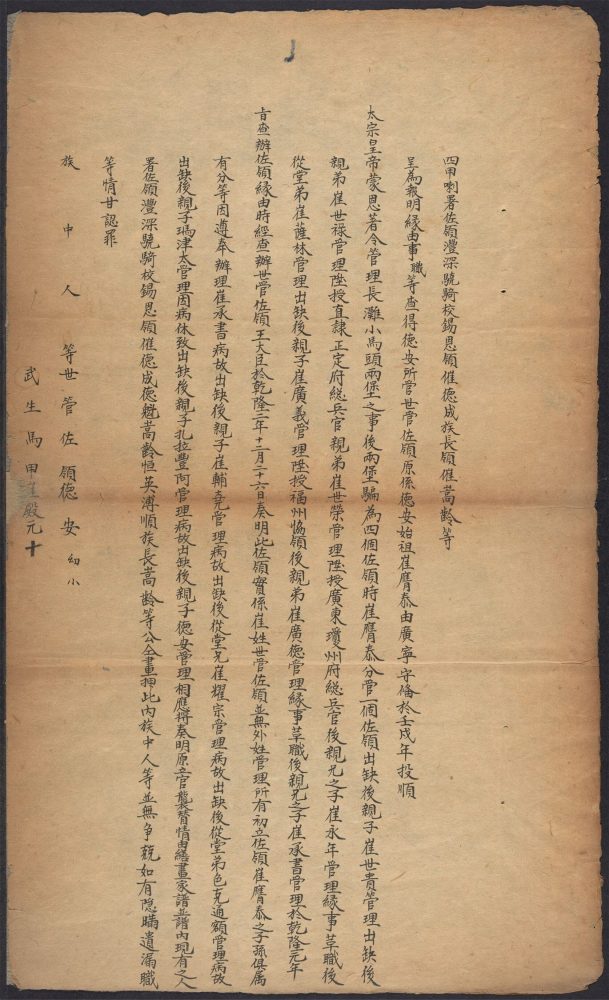 四甲喇署佐領灃深驍騎校錫恩領催德成族長領催嵩齡等
呈為報明緣由事職等查得德安所管世管佐領原係德安始祖崔膺泰由廣寧守僃於壬戌年投順
太宗皇帝蒙恩著令管理長灘小馬頭兩堡之事後兩堡騙為四個佐領時崔膺泰分管一個佐領出缺後親子崔世貴管理出缺後
親弟崔世祿管理陞授直隸正定府総兵官親弟崔世榮管理陞授廣東瓊州府総兵官後親兄之子崔永年管理緣事革職後
從堂弟崔薩林管理出缺後親子崔廣義管理陞授福州協領後親弟崔廣德管理緣事革職後親兄之子崔承書管理於乾隆元年
旨查辦佐領緣由時經查辦世管佐領王大臣於乾隆三年十二月二十六日奏明此佐領實係崔姓世管佐領並無外姓管理所有初立佐領崔膺泰之子孫俱属
有分等因遵奉辦理崔承書病故出缺後親子崔輔堯管理病故出缺後從堂兄崔耀宗管理病故出缺後從堂弟色克通額管理病故
出缺後親子瑪津太管理因病休致出缺後親子扎拉豐阿管理病故出缺後親子德安管理相應将奏明原立官襲替情由繕畫家譜並譜內現有之人
署佐領灃深驍騎校錫恩領催德成德魁嵩齡恒英溥順族長嵩齡等公仝畫押此內族中人等並無争競如有隐瞞遺漏職
等情甘認罪
族中人等世管佐領德安幼小
武生馬甲崔殿元十